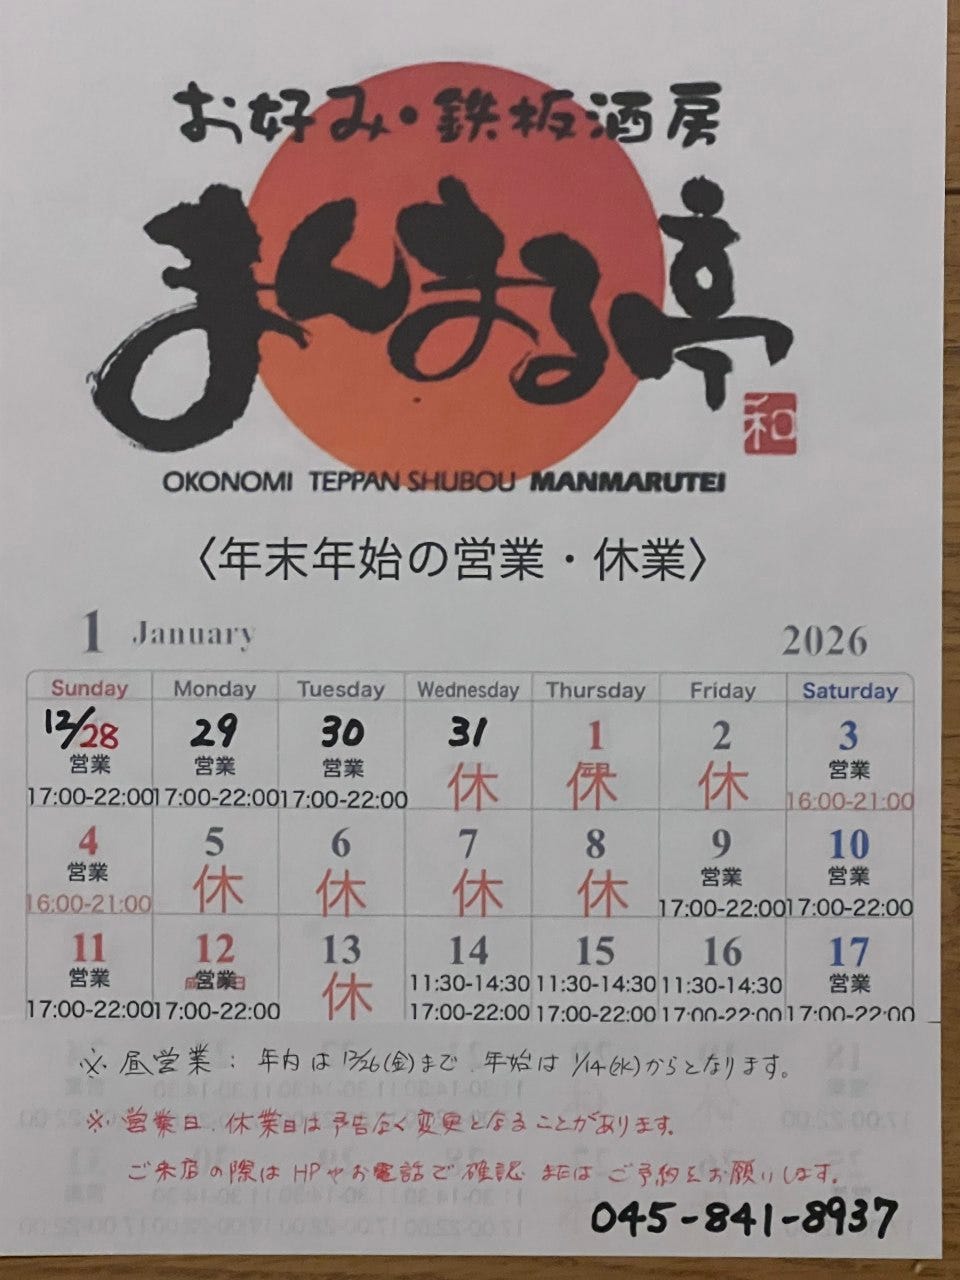 お好み・鉄板酒房
まんまる亭
和
OKONOMI TEPPAN SHUBOU MANMARUTEI
〈年末年始の営業・休業〉
1 January 2026
Sunday Monday Tuesday Wednesday Thursday Friday Saturday
12/28 29 30 31 1 2 3
営業 営業 営業 休 休 休 営業
17:00-22:00 17:00-22:00 17:00-22:00 16:00-21:00
4 5 6 7 8 9 10
営業 休 休 休 休 営業 営業
16:00-21:00 17:00-22:00 17:00-22:00
11 12 13 14 15 16 17
営業 営業 休 11:30-14:30 11:30-14:30 11:30-14:30 営業
17:00-22:00 17:00-22:00 17:00-22:00 17:00-22:00 17:00-22:00 17:00-22:00
※ 昼営業: 年内は12/26(金)まで 年始は 1/14(水)からとなります。
※ 営業日 休業日は予告なく変更となることがあります。
ご来店の際は HPやお電話で確認 またはご予約をお願いします。
045-841-8937